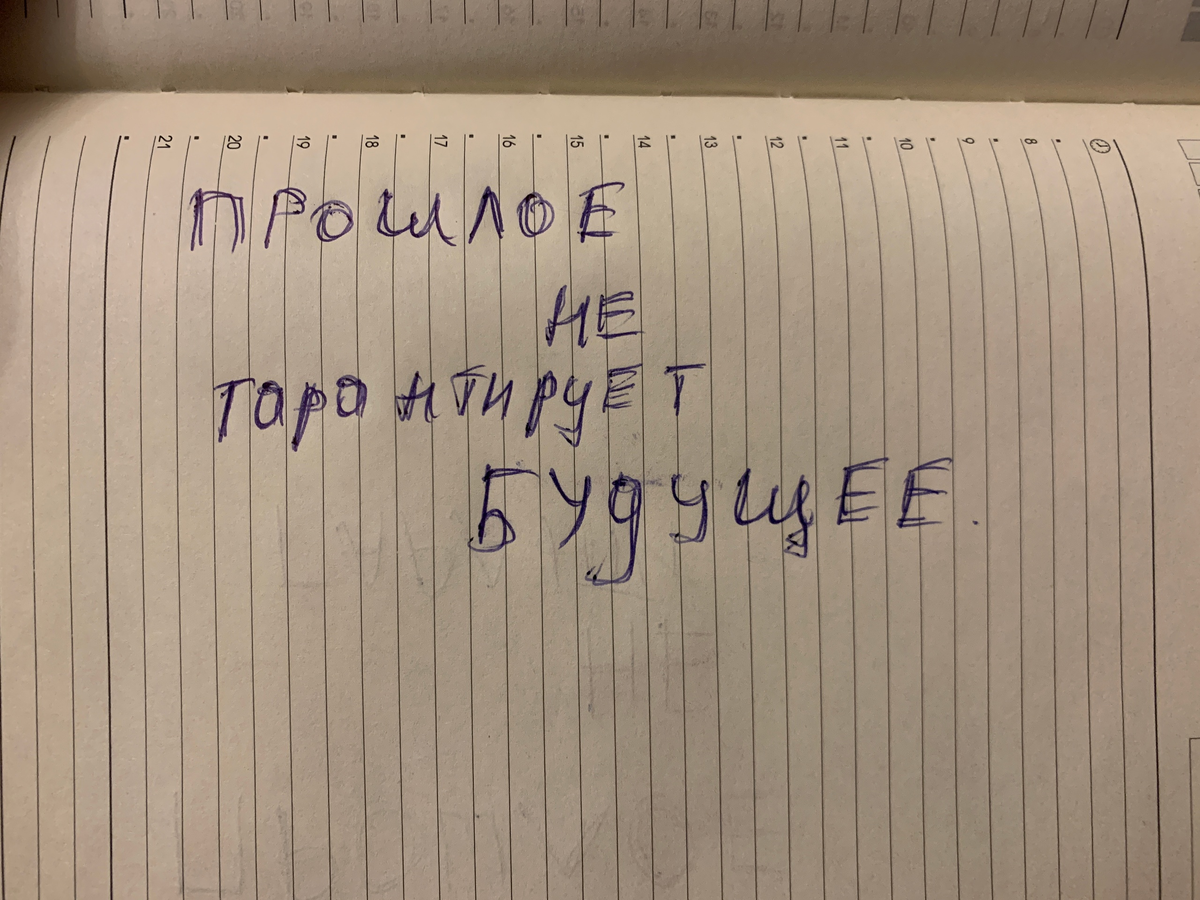 21 20 19 18 17 16 15 14 13 12 11 10 9 8
ПРОШЛОЕ
НЕ
гарантируЕТ
БУДУЩЕЕ.